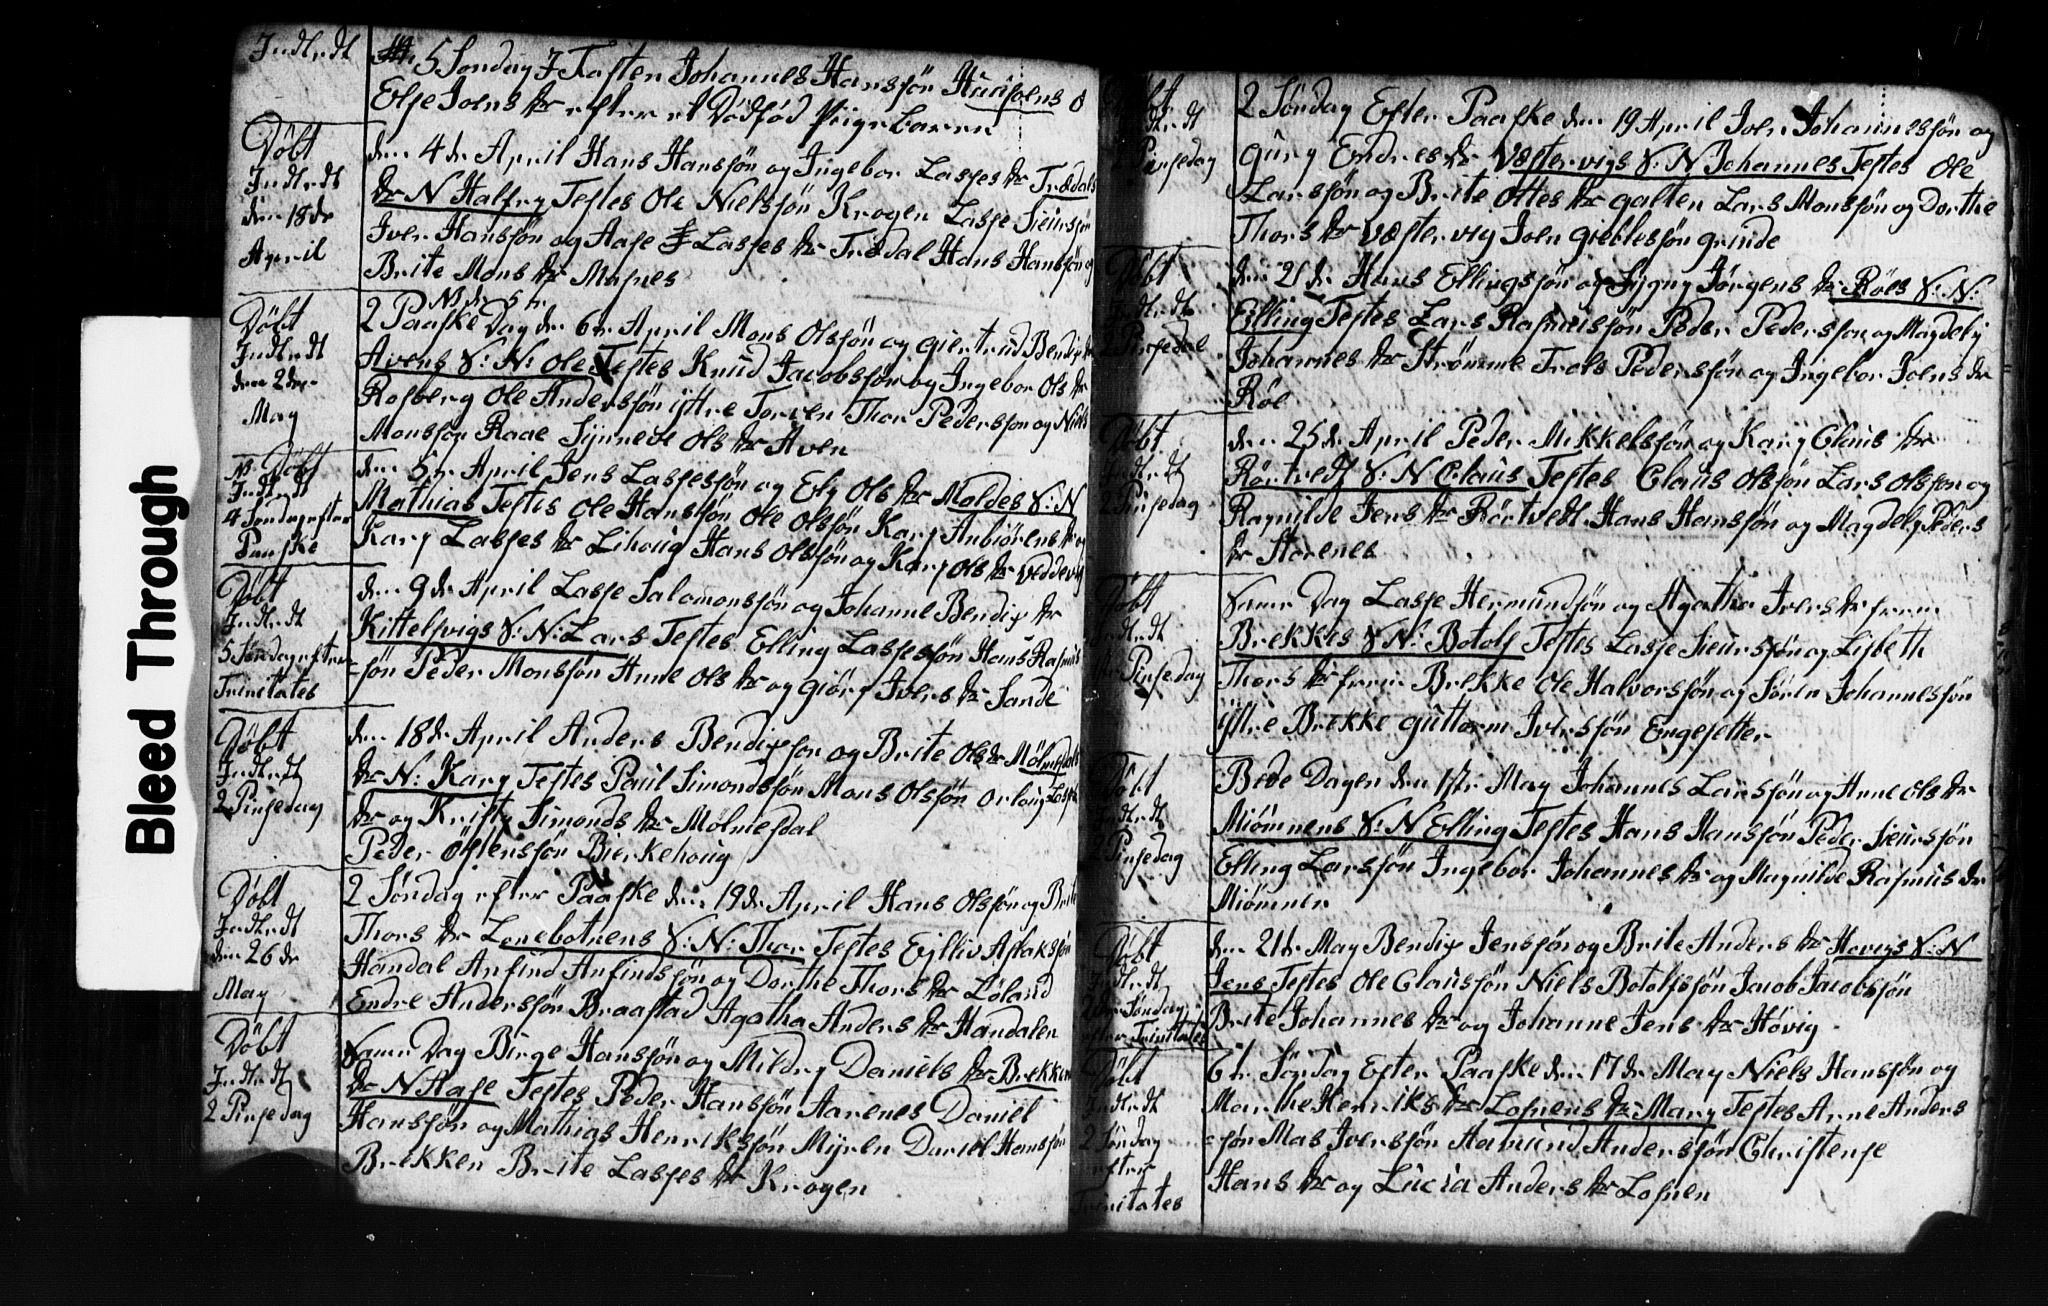 Indledt
5 Søndag J Fasten Johannes Hansøn
Else Joens Dr efter et Dødfød Pigebaren
Døbt
Indledt
den 18de
April
den 4de April Hans Hansøn og Ingebor Lasses Dr Trædals
Dr N Halfry Testes Ole Nielsøn Krogen Lasse Siursøn
Iver Hansøn og Aase Lasses Dr Trædal Hans Hansøn og
Brite Mons Dr Mafnes
Døbt
Indledt
den 2den
May
2 Paaske Dag den 6te April Mons Olsøn og giertrud Bendix Dr
Avens S: N: Ole Testes Knud Jacobsøn og Ingebor Ols Dr
Rosberg Ole Andersøn Thor Pedersøn og Niels
Monsøn Raae Synneve Ols Dr Aven
Døbt
Indledt
4 Søndag efter
Paaske
den 5te April Jens Lassesøn og Ely Ols Dr Moldes S: N
Mathias Testes Ole Hansøn Ole Olsøn Kary Anbiørens Dr og
Kary Lasses Dr Lihoug Hans Olsøn og Kary Ols Dr Veddevig
Døbt
Indledt
5 Søndag efter
Trinitates
den 9de April Lasse Salomonsøn og Johanne Bendix Dr
Kittelsvigs S: N: Lars Testes Elling Lassesøn Hans Rasmus
=søn Peder Monsøn Anne Ols Dr og giøry Ivers Dr Sande
Døbt
Indledt
2 Pinsedag
den 18de April Anders Bendixsøn og Brite Ols Dr Mølmesdals
Dr N: Kary Testes Paul Simondsøn Mons Olsøn Orloug Lasses
Dr og Kristy Simonds Dr Mølmesdal
Peder Østensøn Bierkehoug
Døbt
Indledt
den 26de
May
2 Søndag efter Paaske den 19de April Hans Olsøn og Brite
Thors Dr Lonebotnens S: N: Thor Testes Ejlliv Aslaksøn
Handal Anfind Anfindsøn og Dorthe Thors Dr Løland
Endre Andersøn Braastad Agatha Anders Dr Handalen
Døbt
Indledt
2 Pinsedag
Samme Dag Birge Hansøn og Mildry Daniels Dr Brekkens
Dr N Aase Testes Peder Hansøn Aarenes Daniel
Hansøn og Mathias Henriksøn Myren Daniel Hansøn
Brekken Brite Lasses Dr Krogen
Døbt
Indledt
2 Pinsedag
2 Søndag Efter Paaske den 19 April Joen Johannessøn og
gury Endres Dr Væstervigs S: N Johannes Testes Ole
Larsøn og Brite Ottes Dr galten Lars Monsøn og Dorthe
Thors Dr Væstervig Joen gieblesøn grinde
Døbt
Indledt
2 Pinsedag
den 21de Hans Ellingsøn og Sygny Jørgens Dr Røes S: N:
Elling Testes Lars Rasmusøn Peder Pedersøn og Magdely
Johannes Dr Strømme Trols Pedersøn og Ingebor Joens Dr
Røe
Døbt
Indledt
2 Pinsedag
den 25de April Peder Mikkelsøn og Kary Claus Dr
Rørtvedt S: N Claus Testes Claus Olsøn Lars Olsøn og
Ragnilde Jens Dr Rørtvedt Hans Hansøn og Magdely Peders
Dr Storenes
Døbt
Indledt
Pinsedag
Samme Dag Lasse Hermundsøn og Agatha Ivers Dr frem
Brekkes S N: Botolf Testes Lasse Siursøn og Lisbeth
Thors Dr frem Brekke Ole Halvorsøn og Søren Johannesøn
ystre Brekke guttorm Iversøn Engesetter
Døbt
Indledt
2 Pinsedag
Bede Dagen den 1ste May Johannes Larsøn og Anne Ols Dr
Miømnens S: N Elling Testes Hans Hansøn Peder Siursøn
Elling Larsøn Ingebor Johannes Dr og Magnilde Rasmus Dr
Miømnen
Døbt
Indledt
2den Søndag
efter Trinitates
den 21de May Bendix Jensøn og Brite Anders Dr Høvigs S: N
Jens Testes Ole Clausøn Niels Botolfsøn Jacob Jacobsøn
Brite Johannes Dr og Johanne Jens Dr Høvig
Døbt
Indledt
2 Søndag
efter
Trinitates
6te Søndag Efter Paaske den 17de May Niels Hansøn og
Marthe Henriks Dr Lofnens Dr: Mary Testes Arne Anders
=søn Mas Iversøn Aamund Andersøn Christense
Hans Dr og Lucia Anders Dr Lofnen
Bleed Through